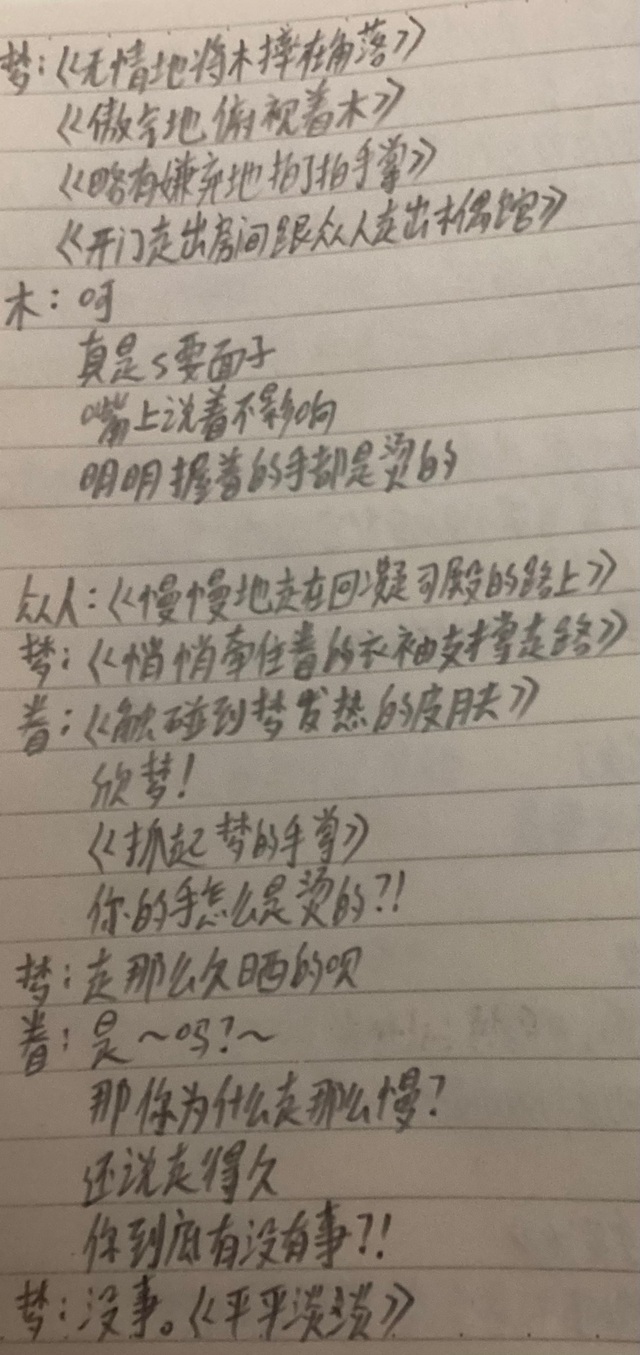 梦：《无情地将木摔在角落》
《傲气地俯视着木》
《略有嫌弃地拍了拍手掌》
《开门走出房间跟众人走出木偶馆》
木：呵
真是s要面子
嘴上说着不影响
明明握着的手都是烫的
众人：《慢慢地走在回凝司殿的路上》
梦：《悄悄牵住着的衣袖支撑走路》
着：《触碰到梦发热的皮肤》
欣梦！
《抓起梦的手掌》
你的手怎么是烫的?!
梦：走那么久晒的呗
着：是～吗？～
那你为什么走那么慢？
还说走得久
你到底有没有事?!
梦：没事。《平平淡淡》